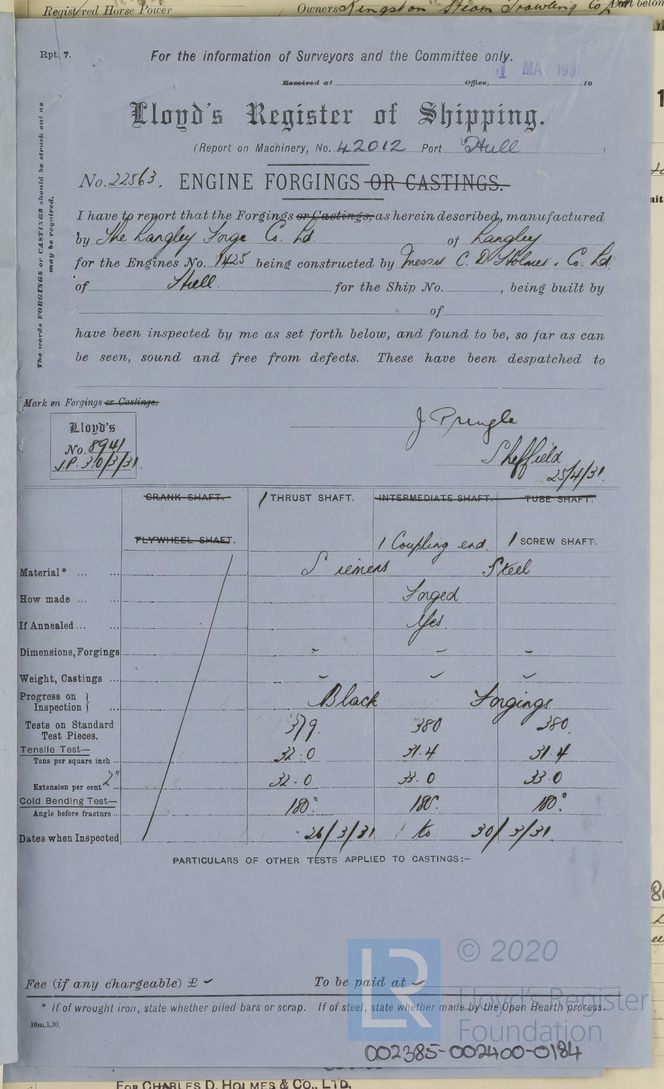 Registered Horse Power Owners Kingston Steam Trawling Co
Rpt. 7.
For the information of Surveyors and the Committee only.
Received at Office, 19
Lloyd's Register of Shipping.
(Report on Machinery, No. 42012 Port Hull )
No. 22563. ENGINE FORGINGS OR CASTINGS.
The words FORGINGS or CASTINGS should be struck out as
may be required.
I have to report that the Forgings or Castings, as herein described, manufactured
by The Langley Forge Co. Ld of Langley
for the Engines No. 1425 being constructed by Messrs C. D. Holmes & Co. Ld.
of Hull. for the Ship No. , being built by
of
have been inspected by me as set forth below, and found to be, so far as can
be seen, sound and free from defects. These have been despatched to
Mark on Forgings or Castings.
Lloyd's
No. 8941
J.P. 30/3/31.
J Pringle
Sheffield
25/4/31.
CRANK SHAFT. 1 THRUST SHAFT. INTERMEDIATE SHAFT. TUBE SHAFT.
FLYWHEEL SHAFT. 1 Coupling end. 1 SCREW SHAFT.
Material* ... ... Siemens Steel
How made ... ... Forged
If Annealed ... ... Yes.
Dimensions, Forgings
Weight, Castings ...
Progress on Inspection } Black Forgings
Tests on Standard
Test Pieces. 379. 380 380.
Tensile Test—
Tons per square inch ... 32.0 31.4 31.4
Extension per cent 2" ... 32.0 33.0 33.0
Cold Bending Test—
Angle before fracture ... 180° 180° 180°
Dates when Inspected 26/3/31 to 30/3/31.
PARTICULARS OF OTHER TESTS APPLIED TO CASTINGS:—
© 2020
LR
Lloyd's Register
Foundation
Fee (if any chargeable) £ To be paid at
* If of wrought iron, state whether piled bars or scrap. If of steel, state whether made by the Open Hearth process.
10m.1.30.
002385-002400-0184
FOR CHARLES D. HOLMES & CO., LTD.